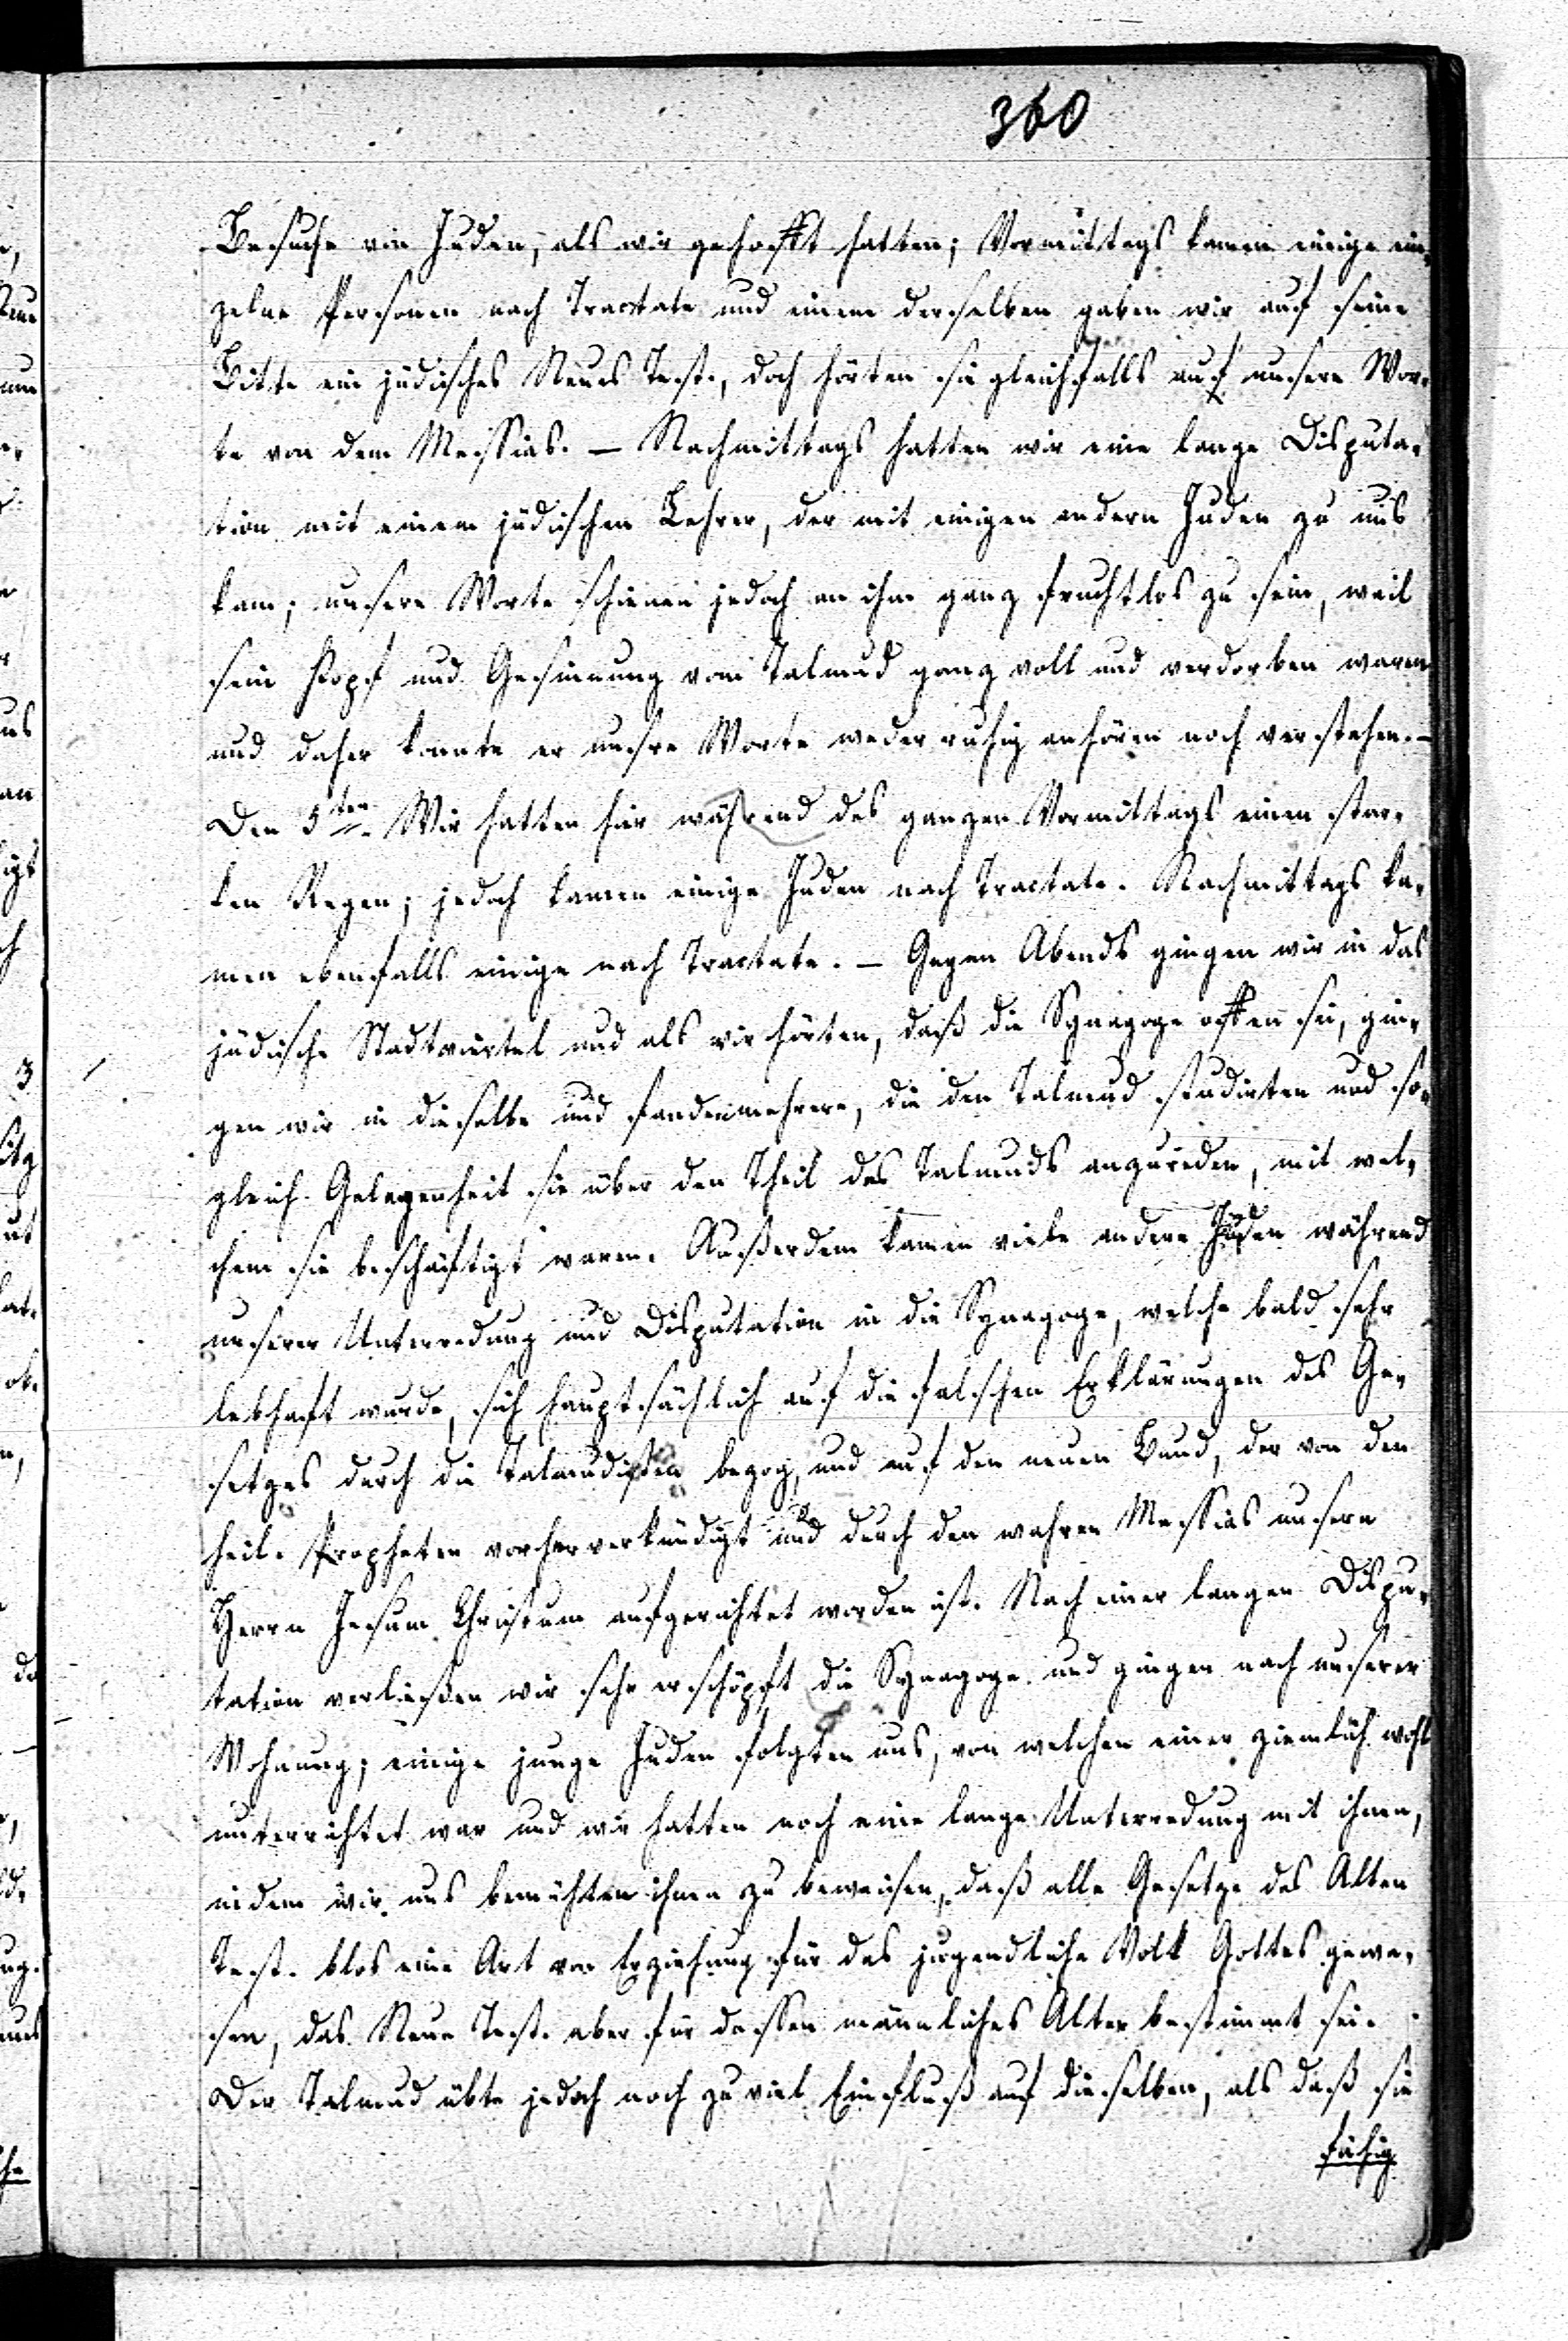 360
Besuche von Juden, als wir gehofft hatten; Vormittags kamen einige ein-
zelne Personen nach Tractate und einem derselben gaben wir auf seine
Bitte ein jüdisches Neues Test., doch hörten sie gleichfalls auf unsere Wor-
te von dem Messias. — Nachmittags hatten wir eine lange Disputa-
tion mit einem jüdischen Lehrer, der mit einigen andern Juden zu uns
kam; unsere Worte schienen jedoch an ihm ganz fruchtlos zu sein, weil
sein Kopf und Gesinnung vom Talmud ganz voll und verdorben waren
und daher konnte er unsre Worte weder ruhig anhören noch verstehen. —
Den 5ten. Wir hatten hier während des ganzen Vormittags einen star-
ken Regen; jedoch kamen einige Juden nach Tractate. Nachmittags ka-
men ebenfalls einige nach Tractate. — Gegen Abends gingen wir in das
jüdische Stadtviertel und als wir hörten, daß die Synagoge offen sei, gin-
gen wir in dieselbe und fanden mehrere, die den Talmud studirten und so-
gleich Gelegenheit sie über den Theil des Talmuds anzureden, mit wel-
chem sie beschäftigt waren. Außerdem kamen viele andere Juden während
unserer Unterredung und Disputation in die Synagoge, welche bald sehr
lebhaft wurde, sich hauptsächlich auf die falschen Erklärungen des Ge-
setzes durch die Talmudisten bezog, und auf den neuen Bund, der von den
heil. Propheten vorherverkündigt und durch den wahren Messias unsern
Herrn Jesum Christum aufgerichtet worden ist. Nach einer langen Dispu-
tation verließen wir sehr erschöpft die Synagoge und gingen nach unserer
Wohnung; einige junge Juden folgten uns, von welchen einer ziemlich wohl
unterrichtet war und wir hatten noch eine lange Unterredung mit ihnen,
indem wir uns bemühten ihnen zu beweisen, daß alle Gesetze des Alten
Test. blos eine Art von Erziehung für das jugendliche Volk Gottes gewe-
sen, das Neue Test. aber für dessen männliches Alter bestimmt sei.
Der Talmud übte jedoch noch zu viel Einfluß auf dieselben, als daß sie
fähig